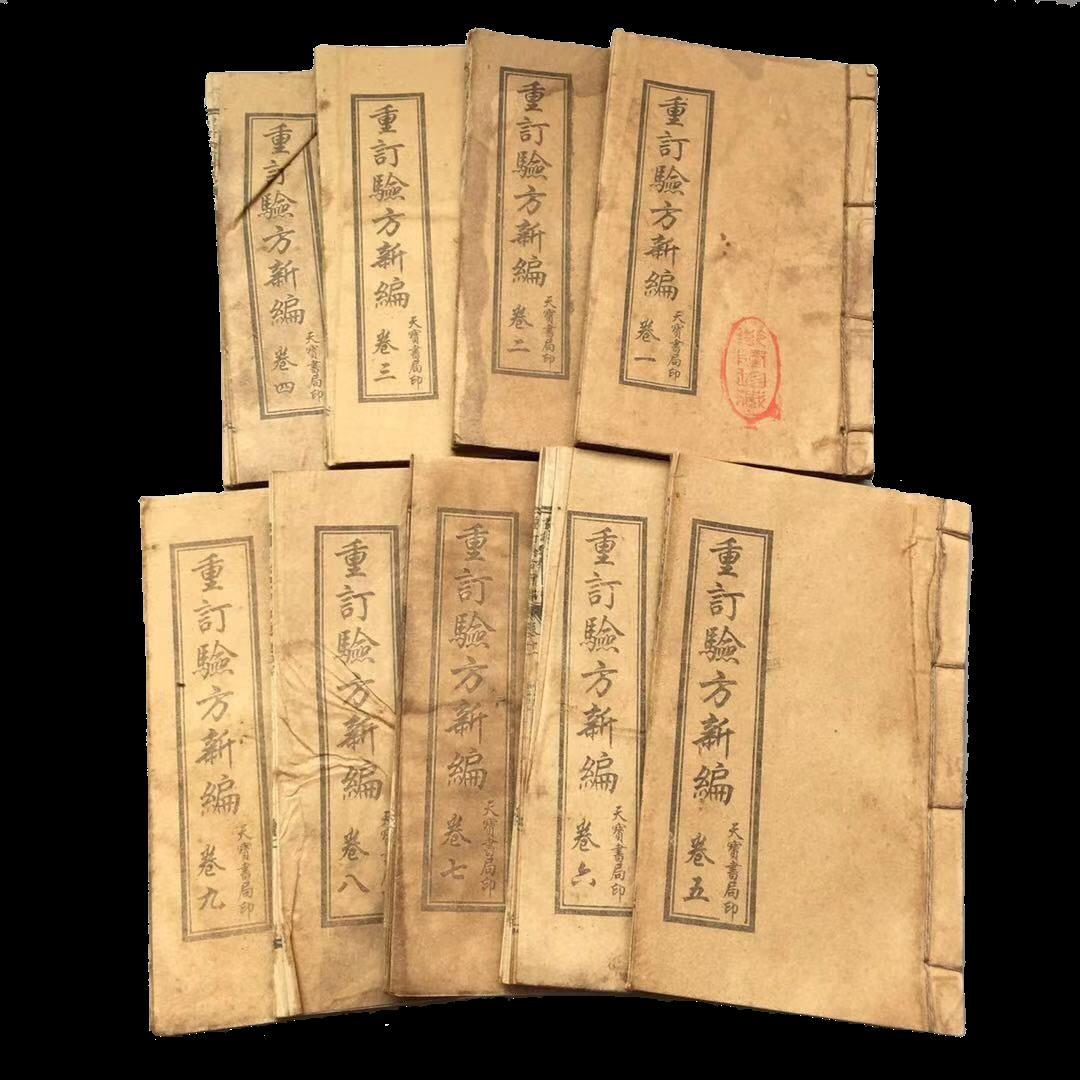 重訂驗方新編
卷一
天寶書局印
重訂驗方新編
卷二
天寶書局印
重訂驗方新編
卷三
天寶書局印
重訂驗方新編
卷四
天寶書局印
重訂驗方新編
卷五
天寶書局印
重訂驗方新編
卷六
天寶書局印
重訂驗方新編
卷七
天寶書局印
重訂驗方新編
卷八
重訂驗方新編
卷九
天寶書局印